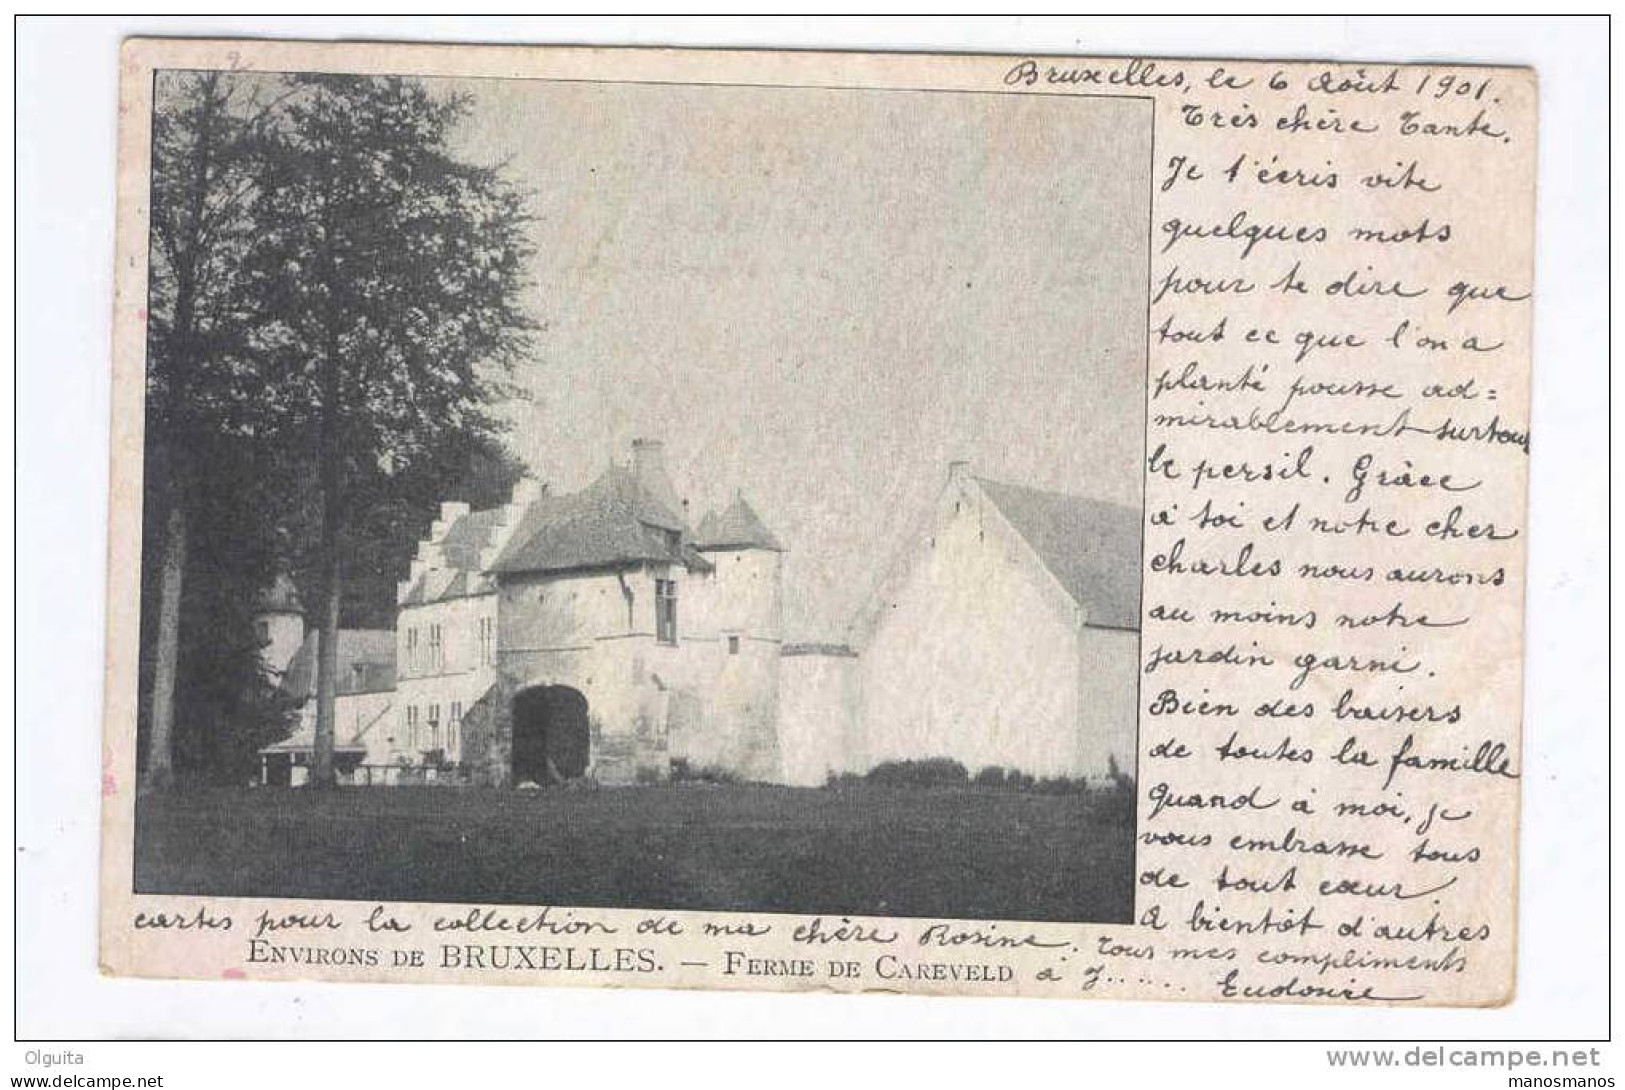 Bruxelles, le 6 Août 1901.
Très chère Tante.
Je t'écris vite
quelques mots
pour te dire que
tout ce que l'on a
planté pousse ad=
mirablement surtout
le persil. Grâce
à toi et notre cher
charles nous aurons
au moins notre
jardin garni.
Bien des baisers
de toutes la famille
Quand à moi, je
vous embrasse tous
de tout cœur.
A bientôt d'autres
cartes pour la collection de ma chère Rosine. Tous mes compliments
à J......
Eudoxie
ENVIRONS DE BRUXELLES. — FERME DE CAREVELD
Olguita
www.delcampe.net
manosmanos